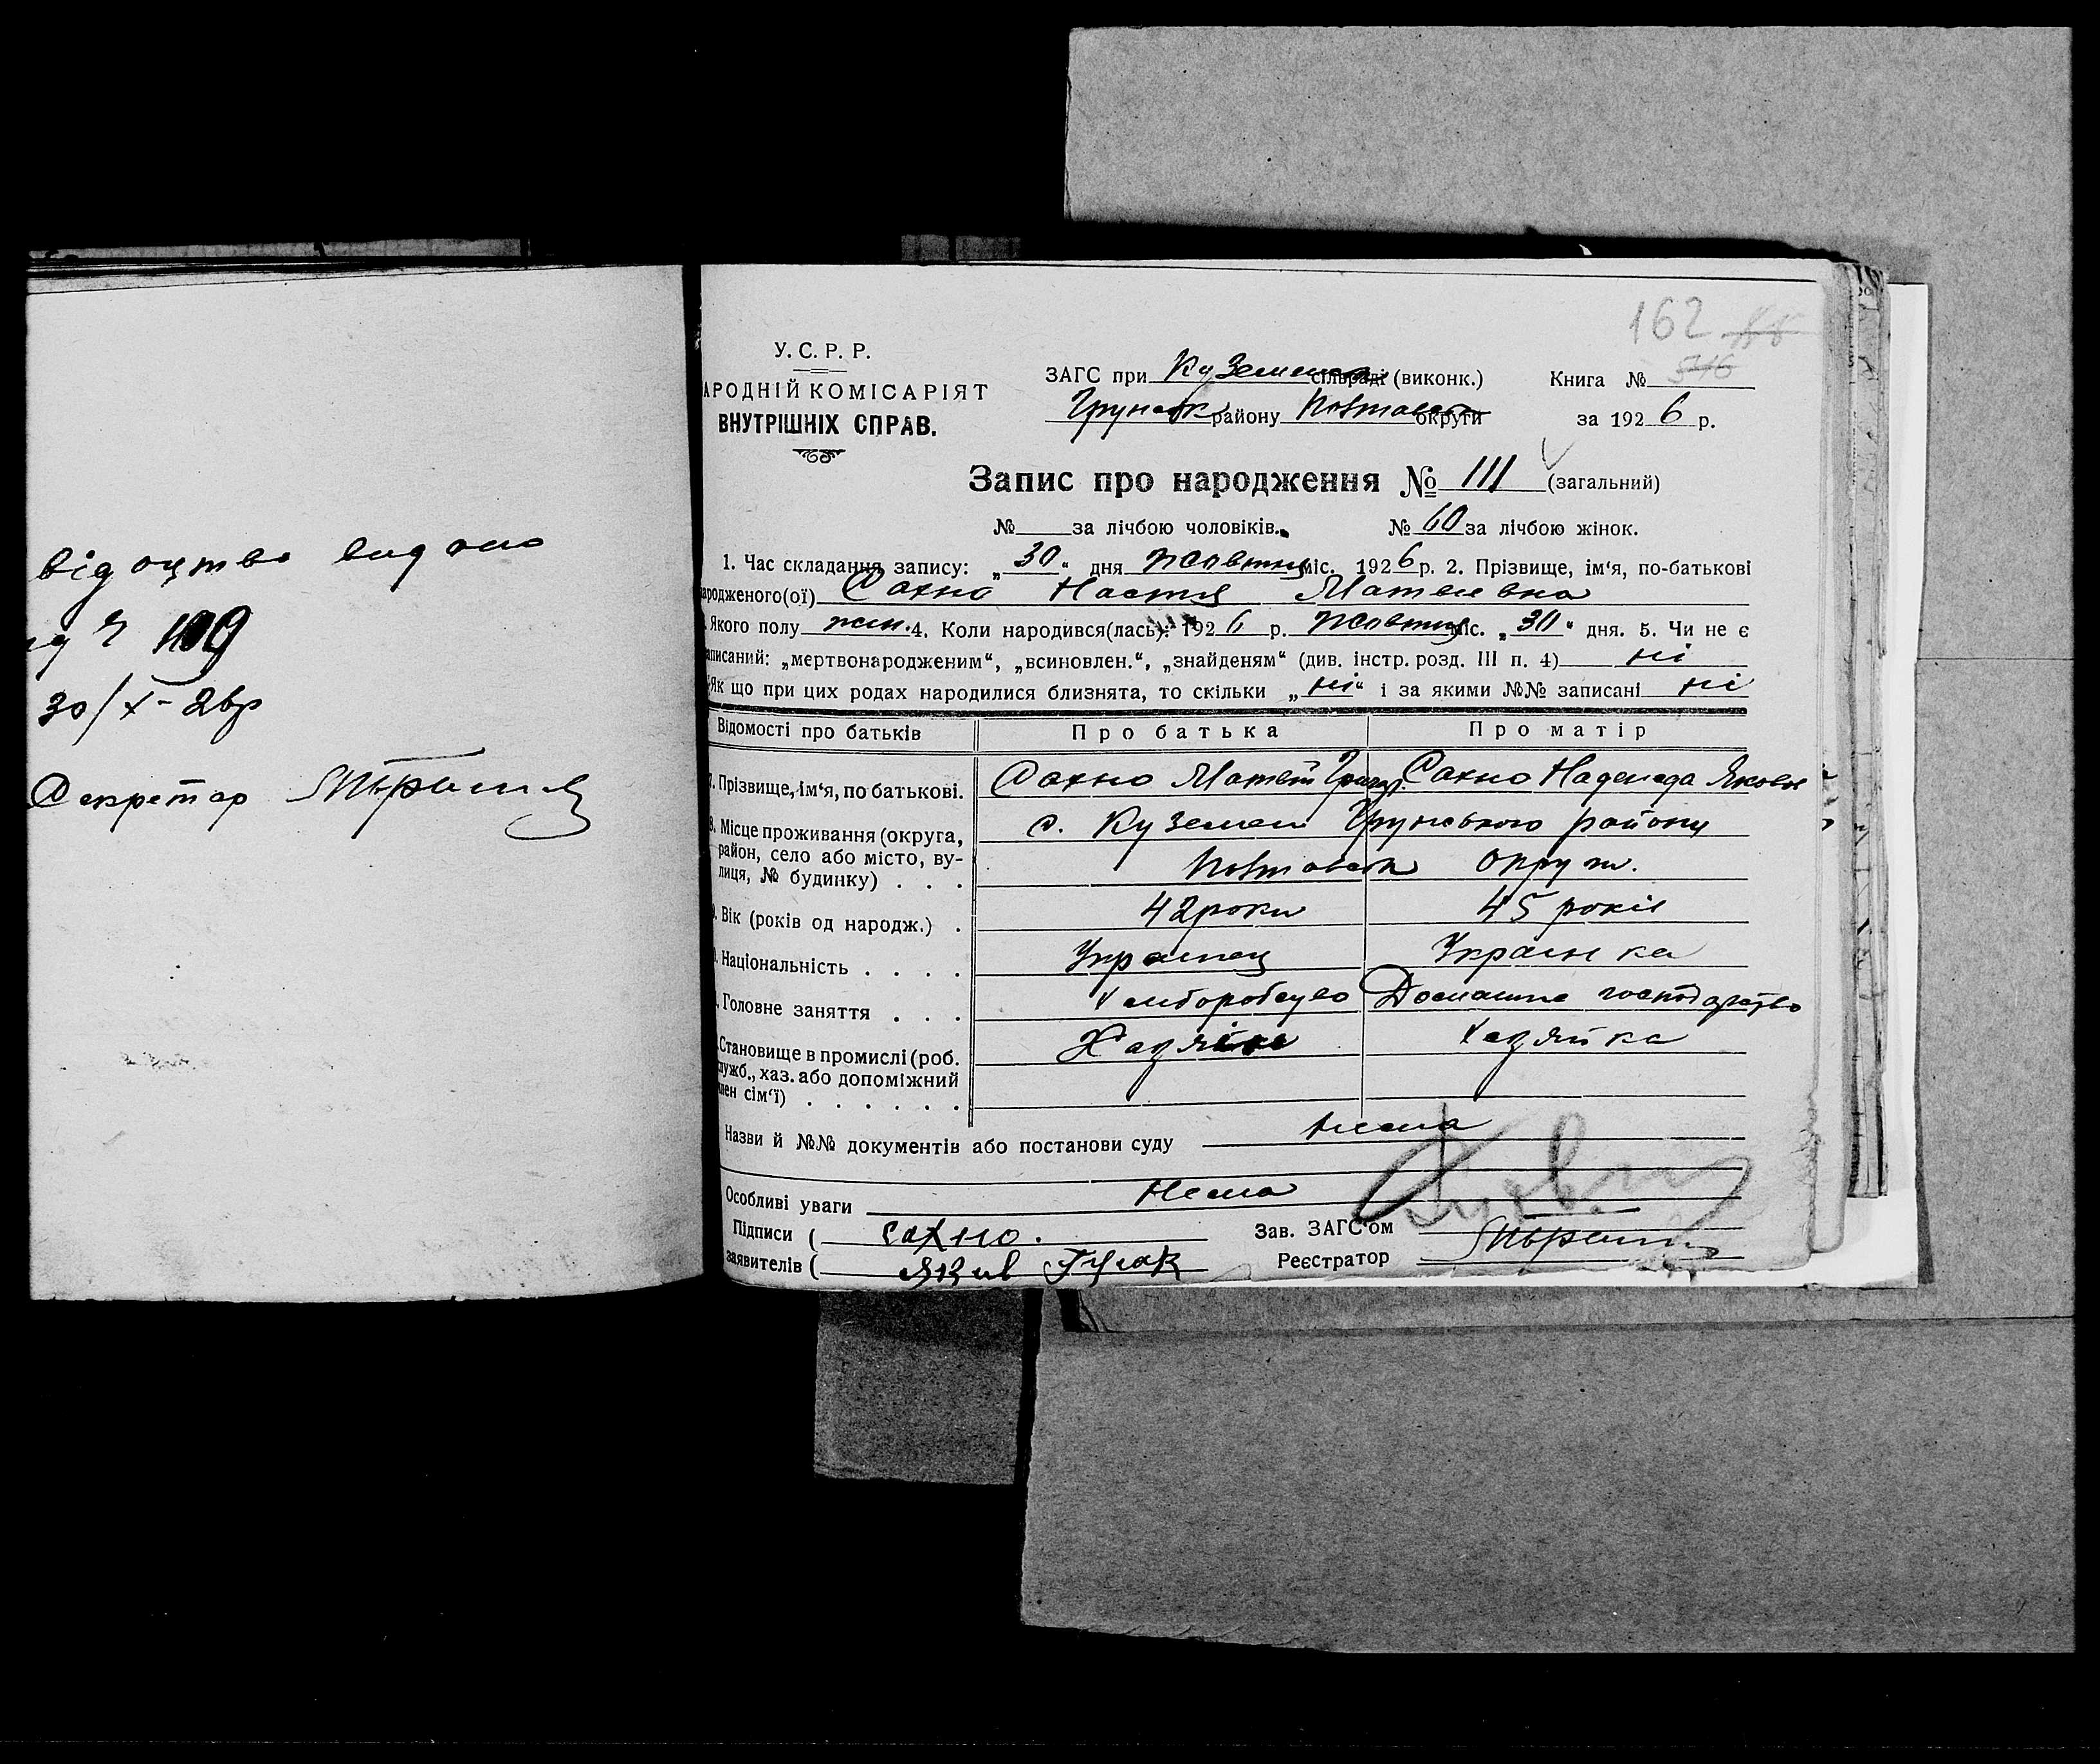 відоцтво видано
109
30/X-26р
Секретар
162
У.С.Р.Р.
АРОДНІЙ КОМІСАРІЯТ
ВНУТРІШНІХ СПРАВ.
ЗАГС при Куземенск сільраді (виконк.)
Грунськ району Полтавськ округи
Книга № 516
за 1926 р.
Запис про народження № 111 (загальний)
№ за лічбою чоловіків. № 60 за лічбою жінок.
1. Час складання запису: „30" дня жовтня міс. 1926 р. 2. Прізвище, ім'я, по-батькові
ародженого(ої) Сахно Настя Матвієвна
Якого полу жін. 4. Коли народився(лась): 1926 р. жовтня міс. „30" дня. 5. Чи не є
аписаний: „мертвонародженим", „всиновлен.", „знайденям" (див. інстр. розд. III п. 4) ні
Як що при цих родах народилися близнята, то скільки „ні" і за якими №№ записані ні
Відомості про батьків Про батька Про матір
7. Прізвище, ім'я, по батькові. Сахно Матвій Григор. Сахно Надежда Яковл
8. Місце проживання (округа, с. Куземен Грунського району
район, село або місто, ву-
лиця, № будинку) . . . Полтавськ округ.
Вік (років од народж.) . 42 роки 45 років
Національність . . . . Украінец Украінка
Головне заняття . . . Хліборобство Домашне господарство
Становище в промислі (роб. Хазяїн Хазяйка
лужб., хаз. або допоміжний
лен сім'ї) . . . . . .
Назви й №№ документів або постанови суду нема
Особливі уваги Нема
Підписи ( сахно.
заявителів ( Яків Гулак
Зав. ЗАГС'ом
Реєстратор